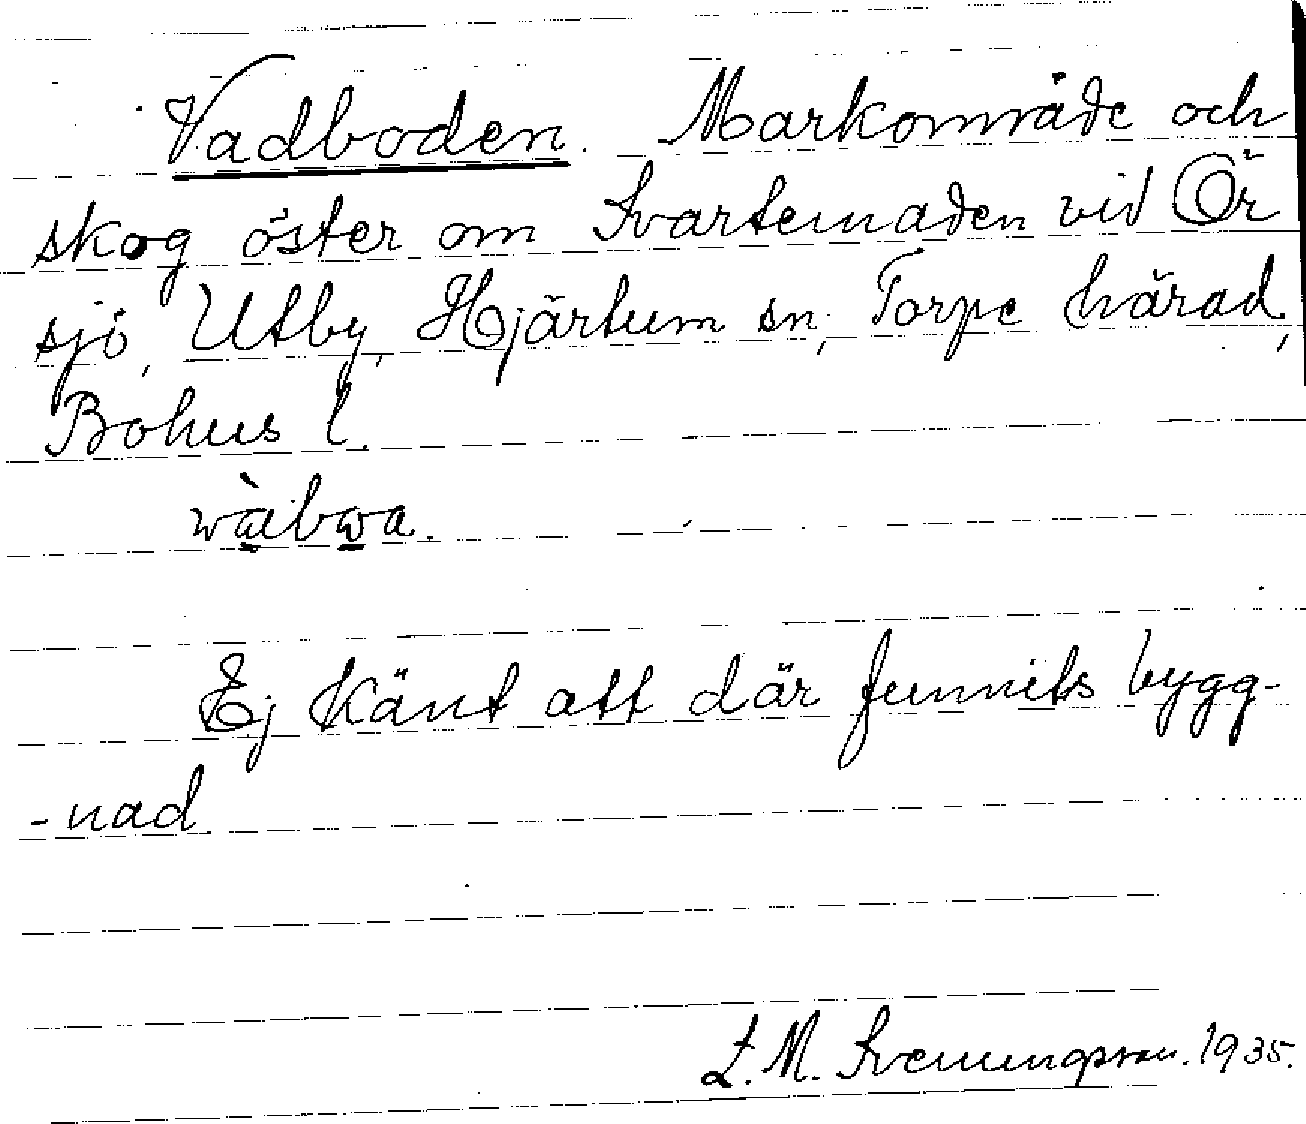 Vadboden. Markområde och
skog öster om Svartemaden vid Ör
sjö, Utby, Hjärtum sn, Torpe härad,
Bohus l.
wàbwa.
Ej känt att där funnits bygg-
-nad
L. M. Svenungsson. 1935.